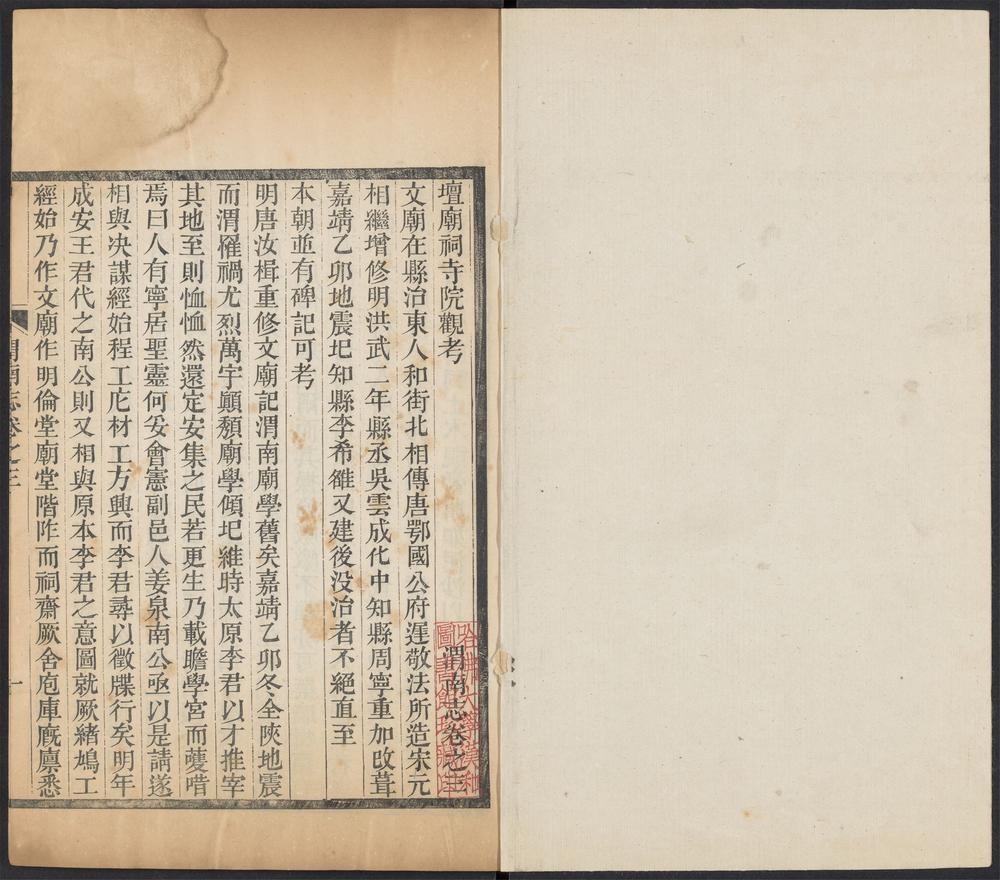 壇廟祠寺院觀考 渭南志卷之三
文廟在縣治東人和街北相傳唐鄂國公府運敬法所造宋元
相繼增修明洪武二年縣丞吳雲成化中知縣周寧重加改葺
嘉靖乙卯地震圮知縣李希雒又建後没治者不絕直至
本朝並有碑記可考
明唐汝楫重修文廟記渭南廟學舊矣嘉靖乙卯冬全陜地震
而渭罹禍尤烈萬宇顛頹廟學傾圮維時太原李君以才推宰
其地至則恤恤然還定安集之民若更生乃載瞻學宮而蘷唶
焉曰人有寧居聖靈何妥會憲副邑人姜泉南公亟以是請遂
相與决謀經始程工庀材工方興而李君尋以徵牒行矣明年
成安王君代之南公則又相與原本李君之意圖就厥緒鳩工
經始乃作文廟作明倫堂廟堂階阼而祠齋厥舍庖庫廐廪悉
渭南志卷之三
一
哈佛大學漢和
圖書館珍藏印